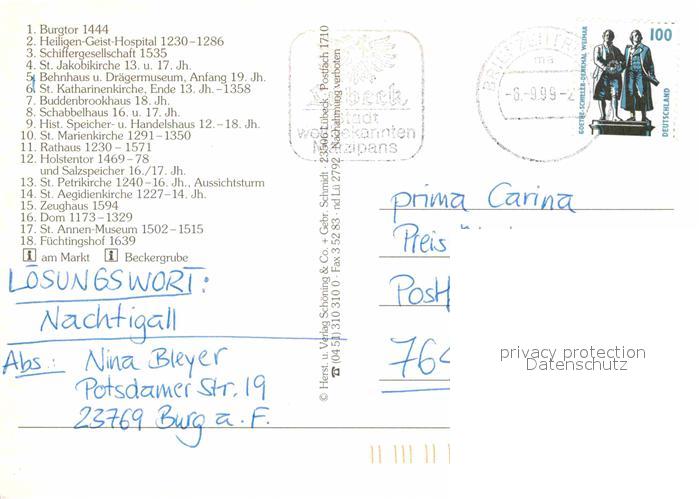 1. Burgtor 1444
2. Heiligen-Geist-Hospital 1230–1286
3. Schiffergesellschaft 1535
4. St. Jakobikirche 13. u. 17. Jh.
5. Behnhaus u. Drägermuseum, Anfang 19. Jh.
6. St. Katharinenkirche, Ende 13. Jh.–1358
7. Buddenbrookhaus 18. Jh.
8. Schabbelhaus 16. u. 17. Jh.
9. Hist. Speicher- u. Handelshaus 12.–18. Jh.
10. St. Marienkirche 1291–1350
11. Rathaus 1230–1571
12. Holstentor 1469–78
und Salzspeicher 16./17. Jh.
13. St. Petrikirche 1240–16. Jh., Aussichtsturm
14. St. Aegidienkirche 1227–14. Jh.
15. Zeughaus 1594
16. Dom 1173–1329
17. St. Annen-Museum 1502–1515
18. Füchtingshof 1639
i am Markt i Beckergrube
LÖSUNGSWORT:
Nachtigall
Abs.: Nina Bleyer
Potsdamer Str. 19
23769 Burg a. F.
© Herst. u. Verlag Schöning & Co. + Gebr. Schmidt · 23506 Lübeck · Postfach 1710
☎ (04 51) 310 310 0 · Fax 3 52 83 · nd Lü 2792 · Nachahmung verboten
Lübeck,
Stadt
des weltbekannten
Marzipans
BRIEFZENTRUM
ma
-6.-9.99-2
100
GOETHE-SCHILLER-DENKMAL WEIMAR
DEUTSCHLAND
prima Carina
Preis
Postf
764
privacy protection
Datenschutz